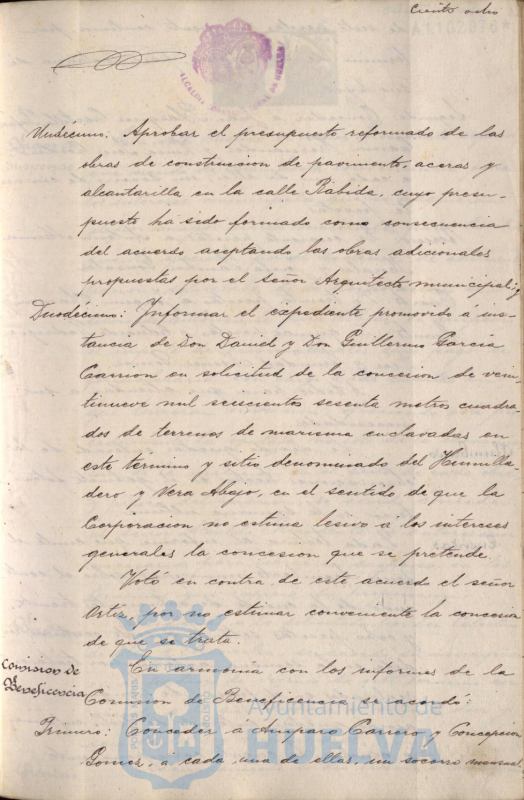 Ciento ocho
ALCALDIA
DE HUELVA
Undécimo: Aprobar el presupuesto reformado de las
obras de construccion de pavimento, aceras y
alcantarilla en la calle Rábida, cuyo presu-
puesto ha sido formado como consecuencia
del acuerdo aceptando las obras adicionales
propuestas por el señor Arquitecto municipal; y
Duodécimo: Informar el expediente promovido á ins-
tancia de Don David y Don Guillermo García
Carrion en solicitud de la concesion de vein-
tinueve mil seiscientos sesenta metros cuadra-
dos de terrenos de marisma enclavadas en
este término y sitio denominado del Humilla-
dero y Vera Abajo, en el sentido de que la
Corporacion no estima lesivo á los intereses
generales la concesion que se pretende.
Votó en contra de este acuerdo el señor
Ortiz, por no estimar conveniente la concesion
de que se trata.
Comision de
Beneficencia
En armonia con los informes de la
Comision de Beneficencia se acordó:
Primero: Conceder á Amparo Carrero y Concepcion
Gomez, á cada una de ellas, un socorro mensual
Ayuntamiento de
HUELVA